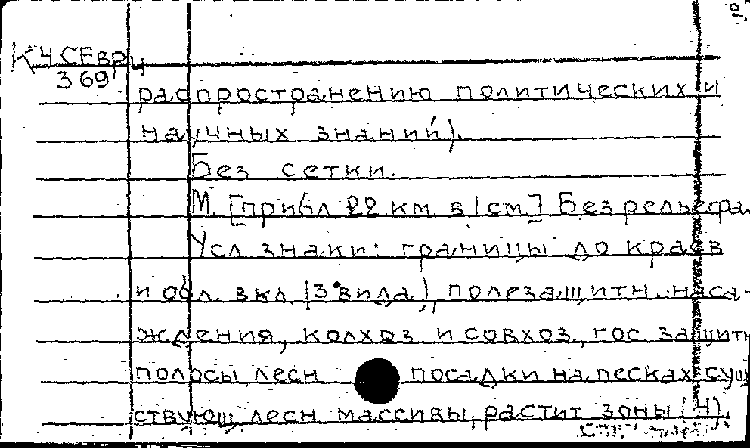 К4СЕвр4
369
распространению политических и
научных знаний).
Без сетки.
М. [прибл 22 км в 1 см] Без рельефа.
Усл знаки: границы до краев
и обл. вкл (3 вида), полезащитн. наса-
ждения, колхоз и совхоз, гос защитн
полосы лесн посадки на песках сущ
ствующ лесн массивы, растит зоны (4).